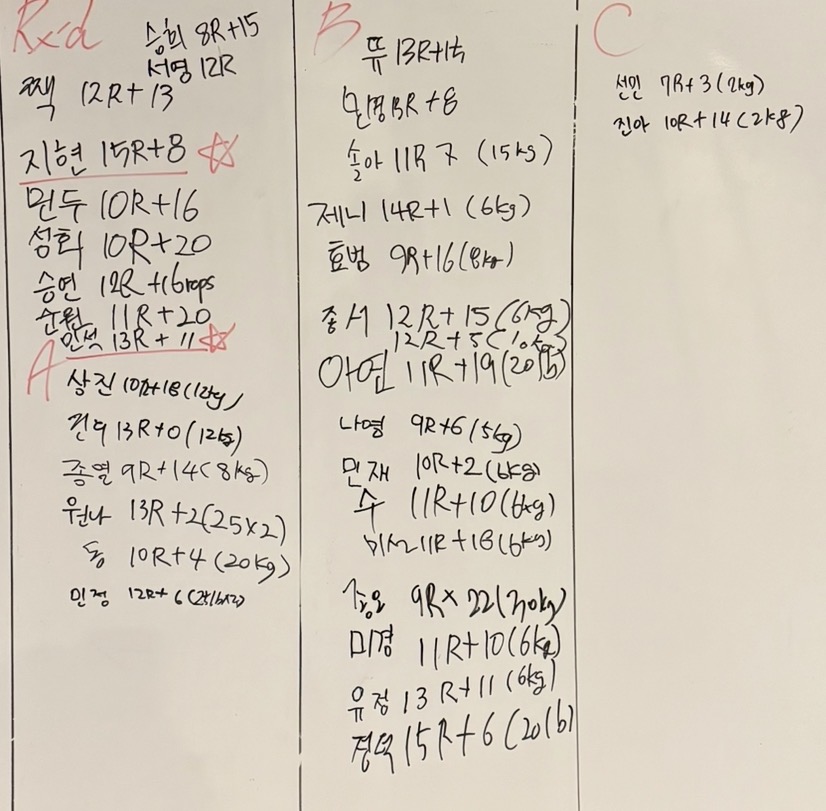 Rx-d
승희 8R+15
서영 12R
짹 12R+13
지현 15R+8 ☆
먼두 10R+16
성희 10R+20
승연 12R+16reps
순원 11R+20
민석 13R+11 ☆
A
상진 10R+18(12kg)
13R+0(12kg)
종열 9R+14(8kg)
원나 13R+2(25x2)
동 10R+4(20kg)
민정 12R+6(25lbx2)
B
뜌 13R+15
민경 13R+8
솔아 11R 7 (15kg)
제니 14R+1 (6kg)
효범 9R+16(8kg)
종서 12R+15(6kg)
12R+5(10kg)
아연 11R+19(20lb)
나영 9R+6(5kg)
민재 10R+2(6kg)
수 11R+10(6kg)
11R+18(6kg)
9Rx22(20kg)
미경 11R+10(6kg)
유정 13R+11(6kg)
경덕 15R+6(20lb)
C
선민 7R+3(2kg)
진아 10R+14(2kg)